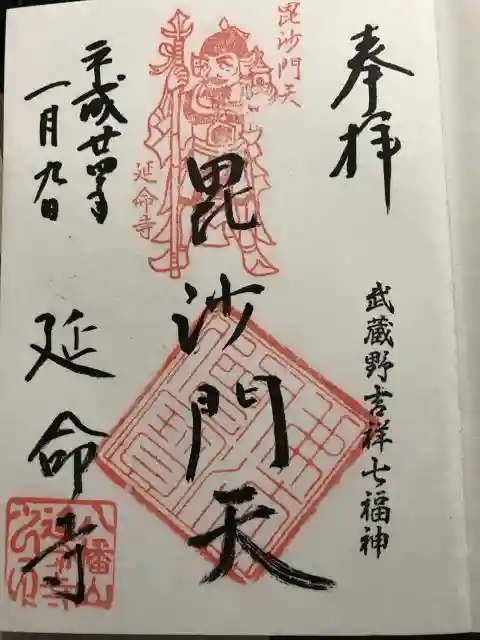 奉拝
武蔵野吉祥七福神
毘沙門天
延命寺
毘沙門天
平成廿四年
一月九日
延命寺